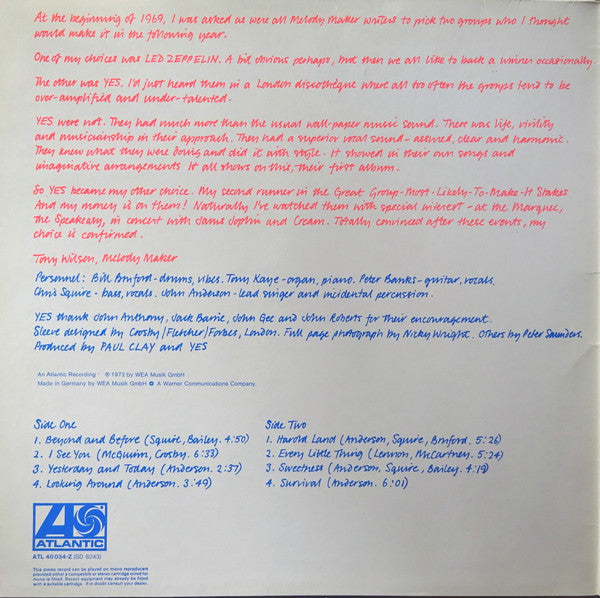 At the beginning of 1969, I was asked as were all Melody Maker writers to pick two groups who I thought
would make it in the following year.
One of my choices was LED ZEPPELIN. A bit obvious perhaps, but then we all like to back a winner occasionally.
The other was YES. I'd just heard them in a London discothèque where all too often the groups tend to be
over-amplified and under-talented.
YES were not. They had much more than the usual wall-paper music sound. There was life, virility
and musicianship in their approach. They had a superior vocal sound-assured, clear and harmonic.
They knew what they were doing and did it with style. It showed in their own songs and
imaginative arrangements It all shows on this, their first album.
So YES became my other choice. My second runner in the Great Group-Most-Likely-To-Make-It Stakes
And my money is on them! Naturally I've watched them with special interest-at the Marquee,
the Speakeasy, in concert with Janis Joplin and Cream. Totally convinced after these events, my
choice is confirmed.
Tony Wilson, Melody Maker
Personnel: Bill Bruford-drums, vibes. Tony Kaye-organ, piano. Peter Banks-guitar, vocals.
Chris Squire-bass, vocals. John Anderson-lead singer and incidental percussion.
YES thank John Anthony, Jack Barrie, John Gee and John Roberts for their encouragement.
Sleeve designed by Crosby/Fletcher/Forbes, London. Full page photograph by Nicky Wright. Others by Peter Saunders.
Produced by PAUL CLAY and YES
An Atlantic Recording · ℗ 1972 by WEA Musik GmbH
Made in Germany by WEA Musik GmbH A Warner Communications Company.
Side One
1. Beyond and Before (Squire, Bailey. 4:50)
2. I See You (McGuinn, Crosby. 6:33)
3. Yesterday and Today (Anderson. 2:37)
4. Looking Around (Anderson. 3:49)
Side Two
1. Harold Land (Anderson, Squire, Bruford. 5:26)
2. Every Little Thing (Lennon, McCartney. 5:24)
3. Sweetness (Anderson, Squire, Bailey. 4:19)
4. Survival (Anderson. 6:01)
ATLANTIC
ATL 40 034-Z (SD 8243)
This stereo record can be played on mono reproducers
provided either a compatible or stereo cartridge wired for
mono is fitted. Recent equipment may already be fitted
with a suitable cartridge. If in doubt consult your dealer.